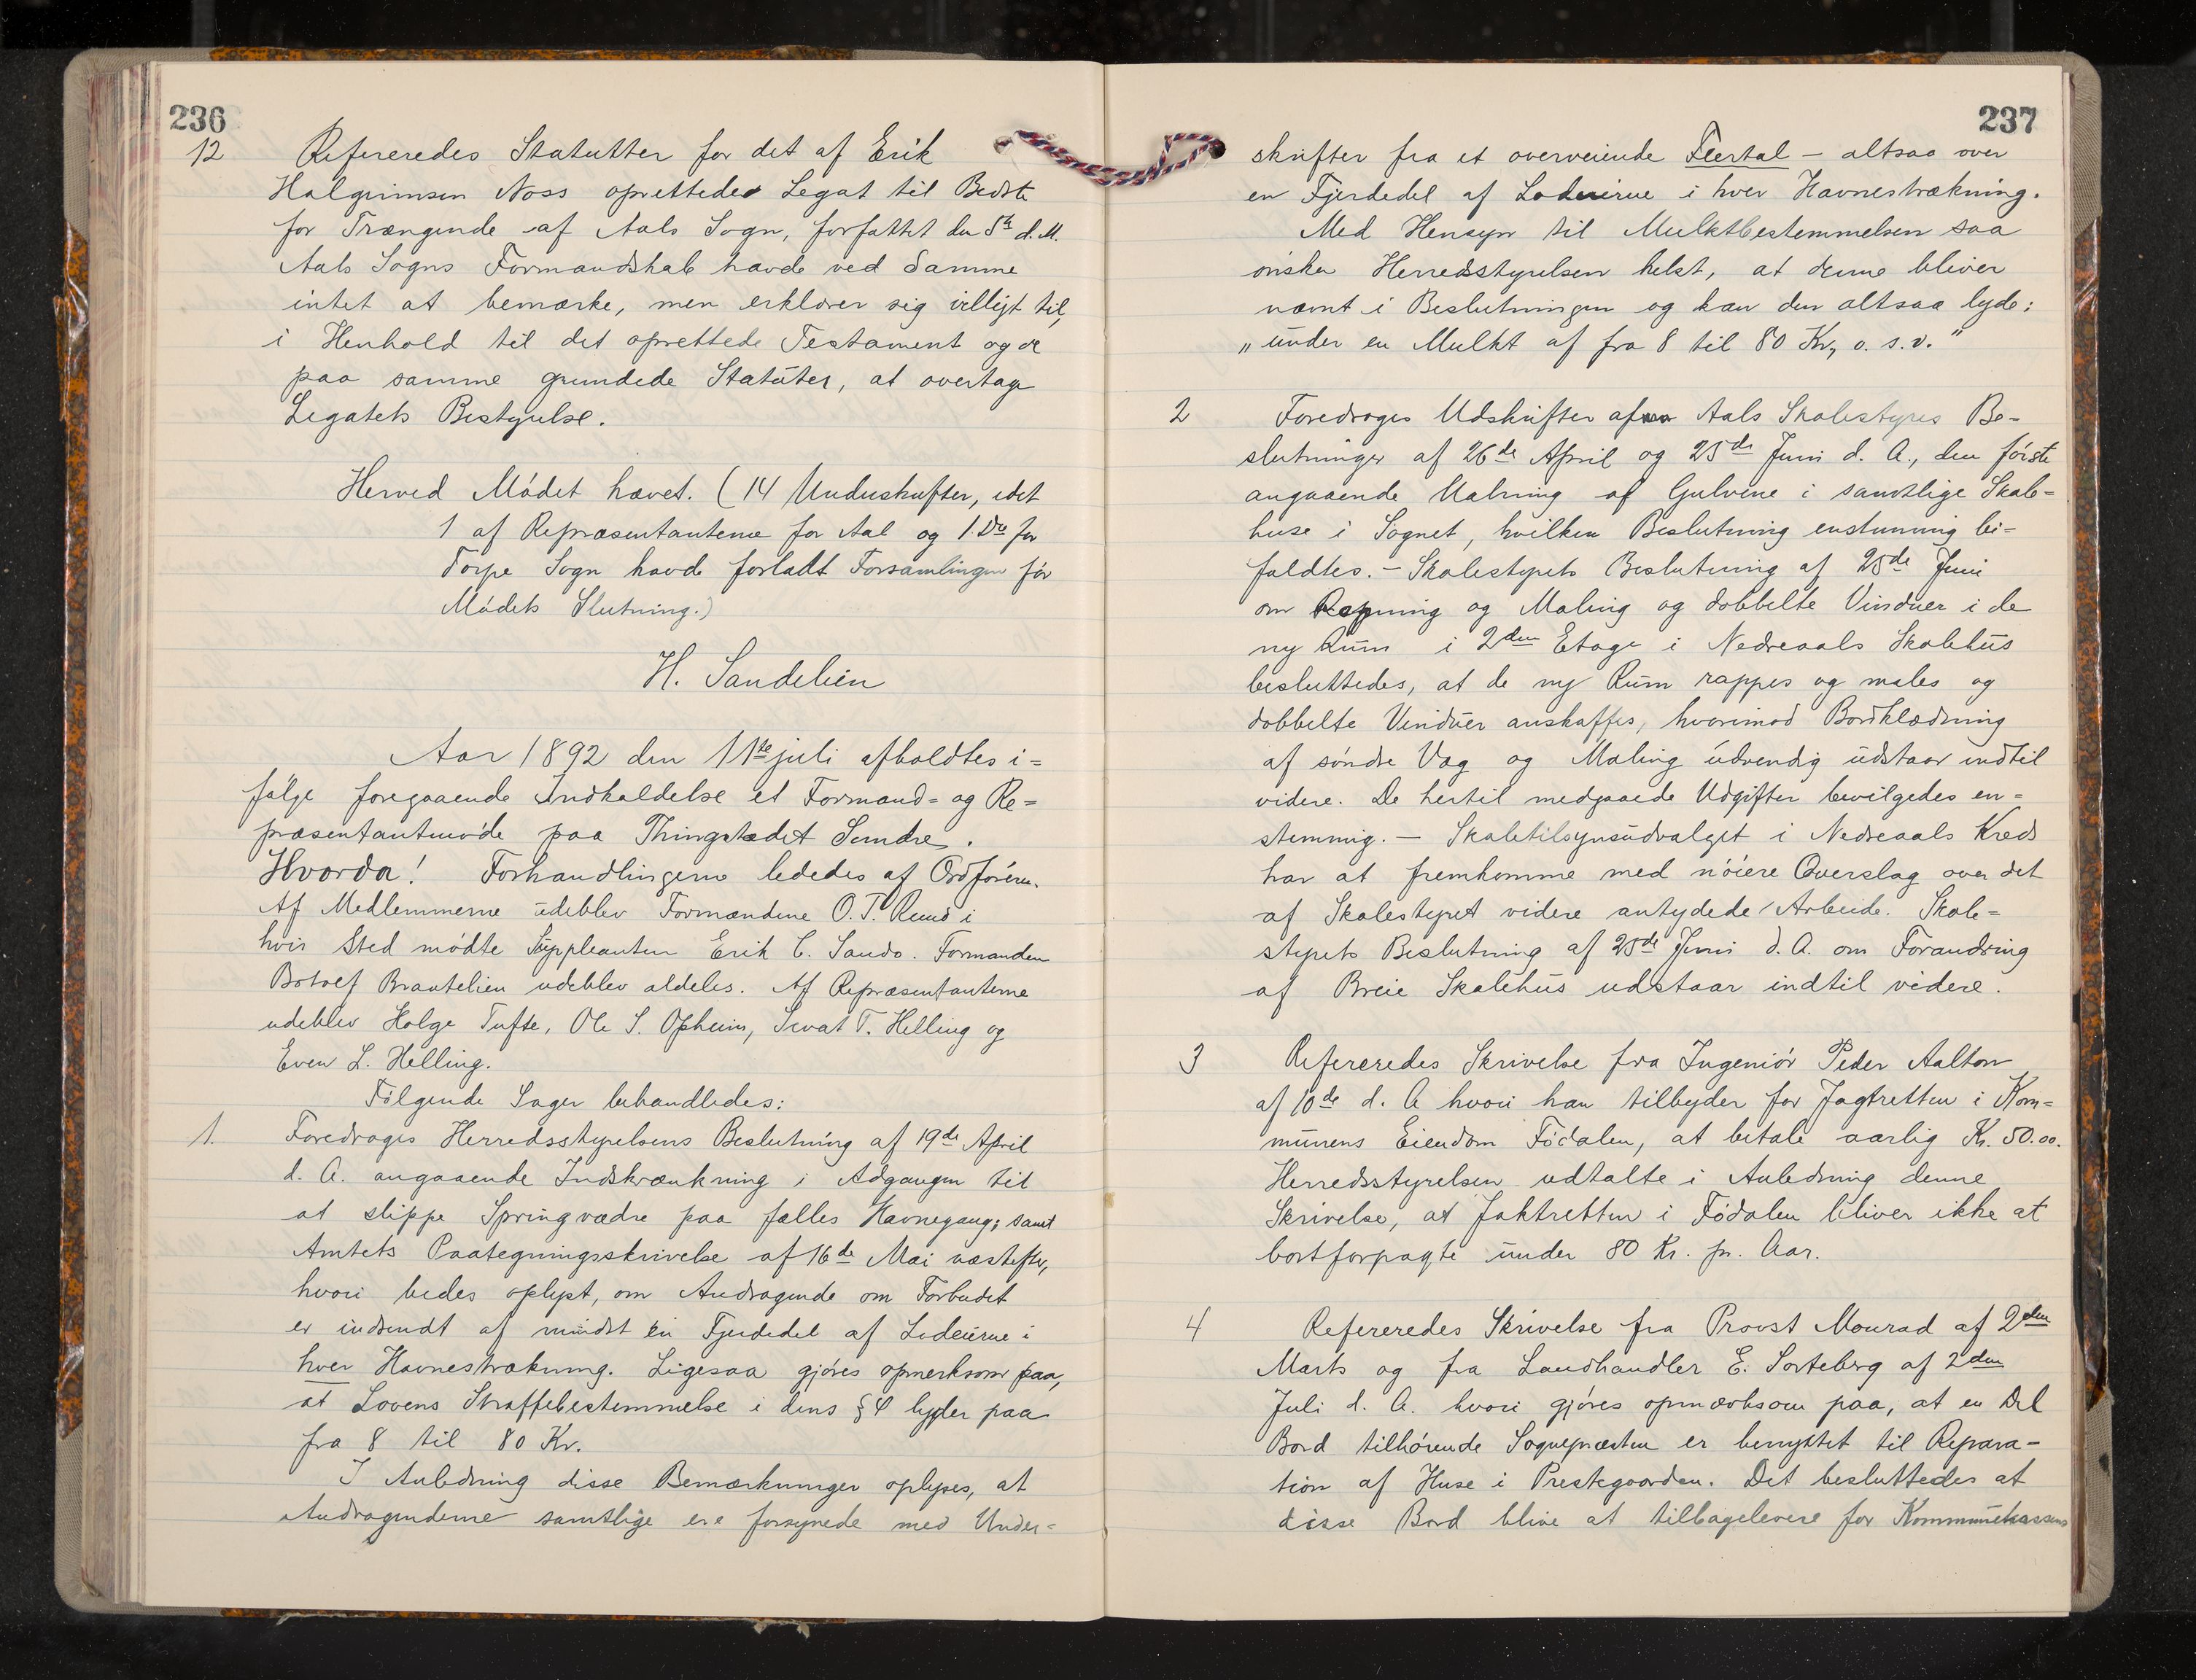 236
12 Refereredes Statutter for det af Erik
Halgrimsen Noss oprettedes Legat til Bedste
for Trængende af Aals Sogn, forfattet den 5te d. M.
Aals Sogns Formandskab havde ved Samme
intet at bemærke, men erklærer sig villigt til,
i Henhold til det oprettede Testament og de
paa samme grundede Statuter, at overtage
Legatets Bestyrelse.
Herved Mødet hævet. (14 Underskrifter, idet
1 af Repræsentanterne for Aal og 1 Do for
Torpe Sogn havde forladt Forsamlingen før
Mødets Slutning.)
H. Sandelien
Aar 1892 den 11te juli afholdtes i=
følge foregaaende Indkaldelse et Formand= og Re=
præsentantmøde paa Thingstedet Sundre.
Hvorda! Forhandlingerne lededes af Ordføreren.
Af Medlemmerne udeblev Formændene O. T. Ruud i
hvis Sted mødte Suppleanten Erik C. Sando. Formanden
Botolf Brautelien udeblev aldeles. Af Repræsentanterne
udeblev Holge Tufte, Ole S. Opheim, Sevat T. Helling og
Even L. Helling.
Følgende Sager behandledes:
1. Foredroges Herredsstyrelsens Beslutning af 19de April
d. A. angaaende Indskrænkning i Adgangen til
at slippe Springvædre paa fælles Havnegang; samt
Amtets Paategningsskrivelse af 16de Mai næstefter,
hvori bedes oplyst, om Andragende om Forbudet
er indsendt af mindst en Fjerdedel af Lodeierne i
hver Havnestrækning. Ligesaa gjøres opmerksom paa,
at Lovens Straffebestemmelse i dens § 4 lyder paa
fra 8 til 80 Kr.
I Anledning disse Bemærkninger oplyses, at
Andragenderne samtlige ere forsynede med Under=
237
skrifter fra et overveiende Flertal – altsaa over
en Fjerdedel af Lodeierne i hver Havnestrækning.
Med Hensyn til Mulktbestemmelsen saa
ønsker Herredsstyrelsen helst, at denne bliver
nævnt i Beslutningen og kan den altsaa lyde:
„under en Mulkt af fra 8 til 80 Kr, o. s. v."
2 Foredroges Udskrifter af Aals Skolestyres Be-
slutninger af 26de April og 25de Juni d. A., den første
angaaende Maling af Gulvene i samtlige Skole=
huse i Sognet, hvilken Beslutning enstemmig bi=
faldtes. – Skolestyrets Beslutning af 25de Juni
om Rapning og Maling og dobbelte Vinduer i de
ny Rum i 2den Etage i Nedreaals Skolehus
besluttedes, at de ny Rum rappes og males og
dobbelte Vinduer anskaffes, hvorimod Bordklædning
af søndre Væg og Maling udvendig udstaar indtil
videre. De hertil medgaaede Udgifter bevilgedes en=
stemmig. – Skoletilsynsudvalget i Nedreaals Kreds
har at fremkomme med nøiere Overslag over det
af Skolestyret videre antydede Arbeide. Skole=
styrets Beslutning af 25de Juni d. A. om Forandring
af Breie Skolehus udstaar indtil videre.
3 Refereredes Skrivelse fra Ingeniør Peder Aalton
af 10de d. A hvori han tilbyder for Jagtretten i Kom=
munens Eiendom Fødalen, at betale aarlig Kr. 50.00.
Herredsstyrelsen udtalte i Anledning denne
Skrivelse, at Jaktretten i Fødalen bliver ikke at
bortforpagte under 80 Kr. pr. Aar.
4 Refereredes Skrivelse fra Provst Monrad af 2den
Marts og fra Landhandler E. Sorteberg af 2den
Juli d. A. hvori gjøres opmærksom paa, at en Del
Bord tilhørende Sognepræsten er benyttet til Repara-
tion af Huse i Prestegaarden. Det besluttedes at
disse Bord blive at tilbagelevere for Kommunekassens